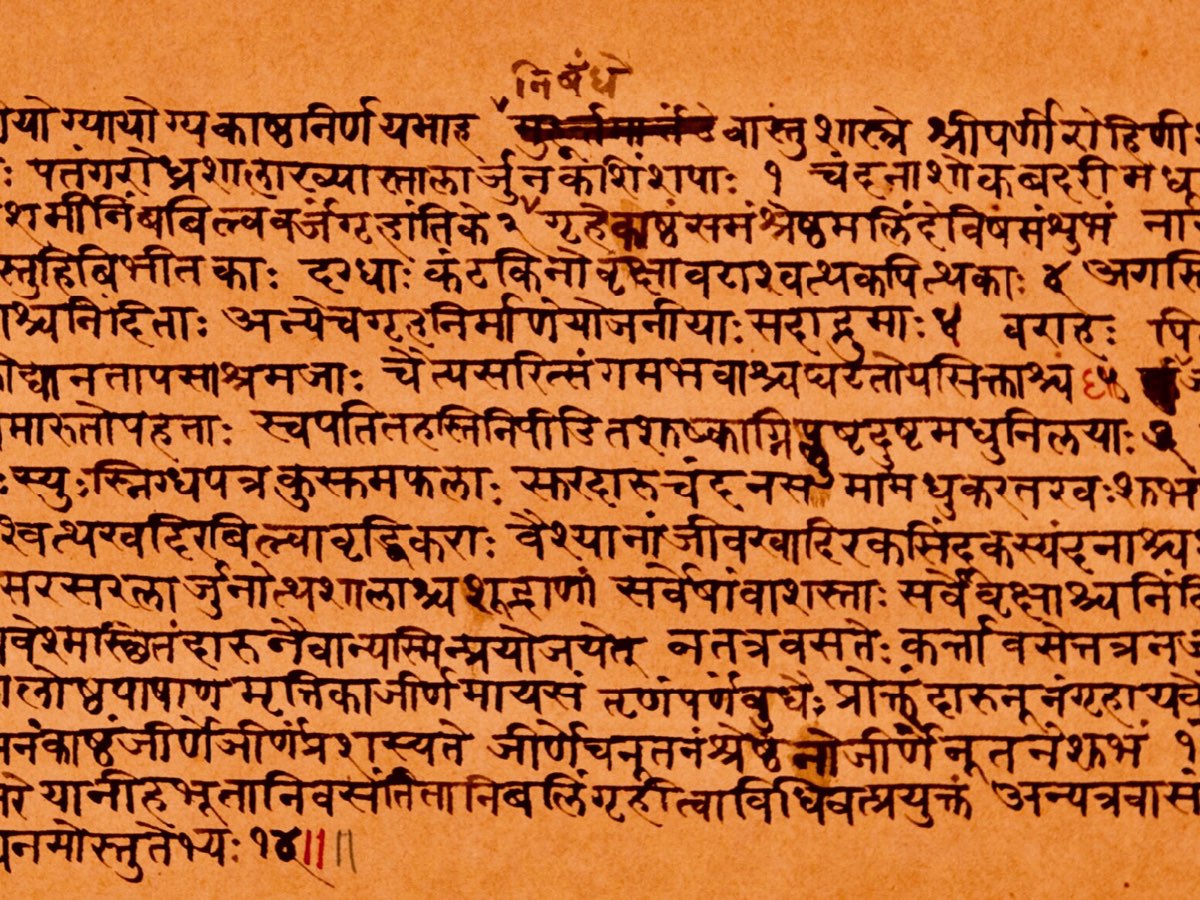 निबंधे
योग्यायोग्यकाष्ठनिर्णयमाह वास्तुशास्त्रे श्रीपर्णीरोहिणी
पतंगरोध्रशालाख्यास्तालार्जुनकशिंशपाः १ चंदनाशोकबदरीमधू
शमीनिंबबिल्व २ गृहेकाष्ठंसमंश्रेष्ठमलिंदेविषमंशुभं ना
स्तुहिबिभीतकाः दग्धाः कंटकिनोवृक्षावटाश्वत्थकपित्थकाः ४ अगस्ति
श्चनिंदिताः अन्येचगृहनिर्माणेयोजनीयाः सदाद्रुमाः ५ वराहः पि
द्यानतापसाश्रमजाः चैत्यसरित्संगमभवाश्चघटतोयसिक्ताश्च
मारुतोपहताः स्वपतितहस्तिनिपीडितशुष्काग्निप्लुष्टदुष्टमधुनिलयाः
स्युः स्निग्धपत्रकुसुमफलाः सुरदारुचंदन मधुकरतरवः शुभ
श्वत्थखदिरबिल्वावृद्धिकराः वैश्यानांजीवखादिरकसिंदुकस्यंदनाश्च
सरसरलार्जुनोत्थशालाश्चशूद्राणां सर्वेषांवाशस्ताः सर्वेवृक्षाश्चनिं
वेश्मास्छितंदारुनैवान्यस्मिन्प्रयोजयेत् नतत्रवसतेः कर्त्तावसेत्तत्रन
लोष्ठपाषाणमृत्तिकाजीर्णमायसं तृणंपर्णंबुधैः प्रोक्तंदारुनूनंगृहाय
नंकाष्ठंजीर्णेजीर्णंप्रशस्यते जीर्णेचनूतनंश्रेष्ठंनोजीर्णंनूतनेशुभं १
यानीहभूतानिवसंतितानिबलिंगृहीत्वाविधिवत्प्रयुक्तं अन्यत्रवासं
नमोस्तुतेभ्यः १४॥॥